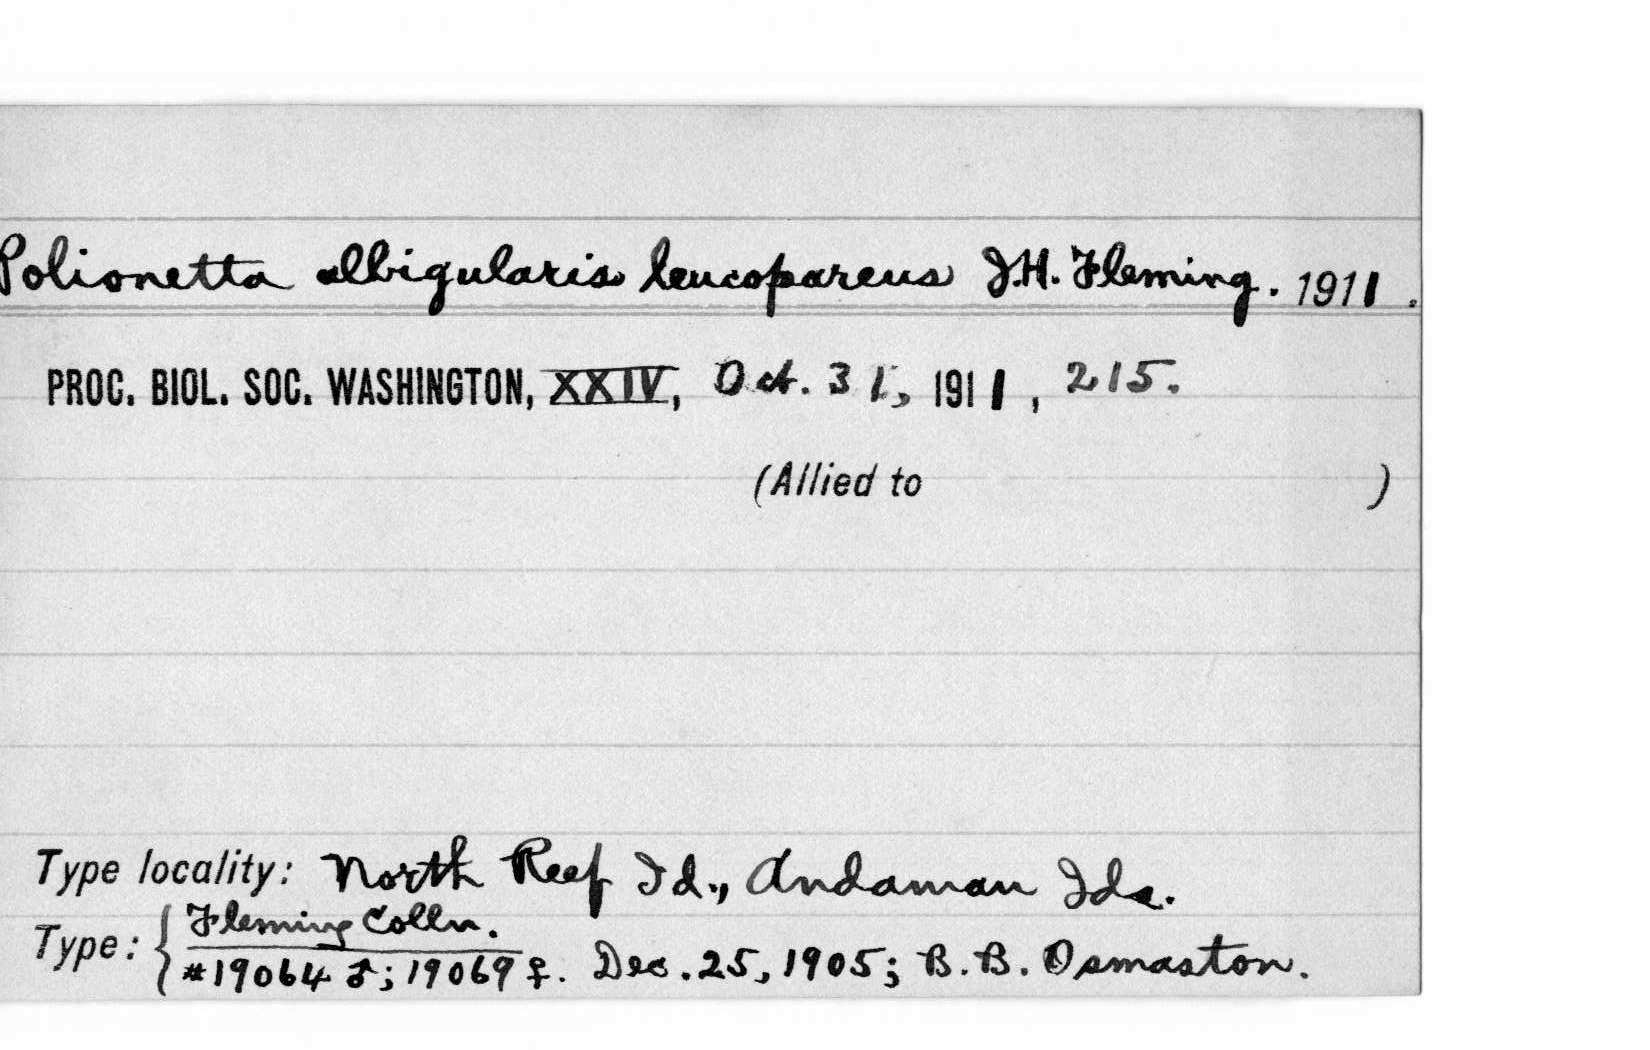 Polionetta albigularis leucopareus J.H. Fleming. 1911.
PROC. BIOL. SOC. WASHINGTON, XXIV, Oct. 31, 1911, 215.
(Allied to )
Type locality: North Reef Id., Andaman Ids.
Type: { Fleming Colln.
#19064 ♂; 19069 ♀. Dec. 25, 1905; B. B. Osmaston.